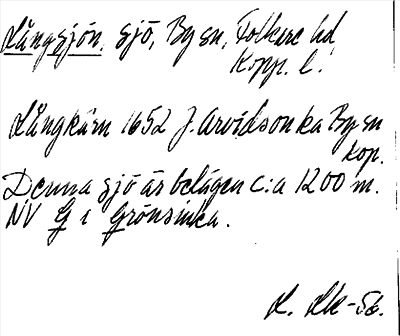 Långsjön, sjö, By sn, Folkare hd
Kopp. l.
Långkärn 1652 J. Arvidson ka By sn
kop.
Denna sjö är belägen c:a 1200 m.
NV G i Grönsinka.
L. Lk -56.